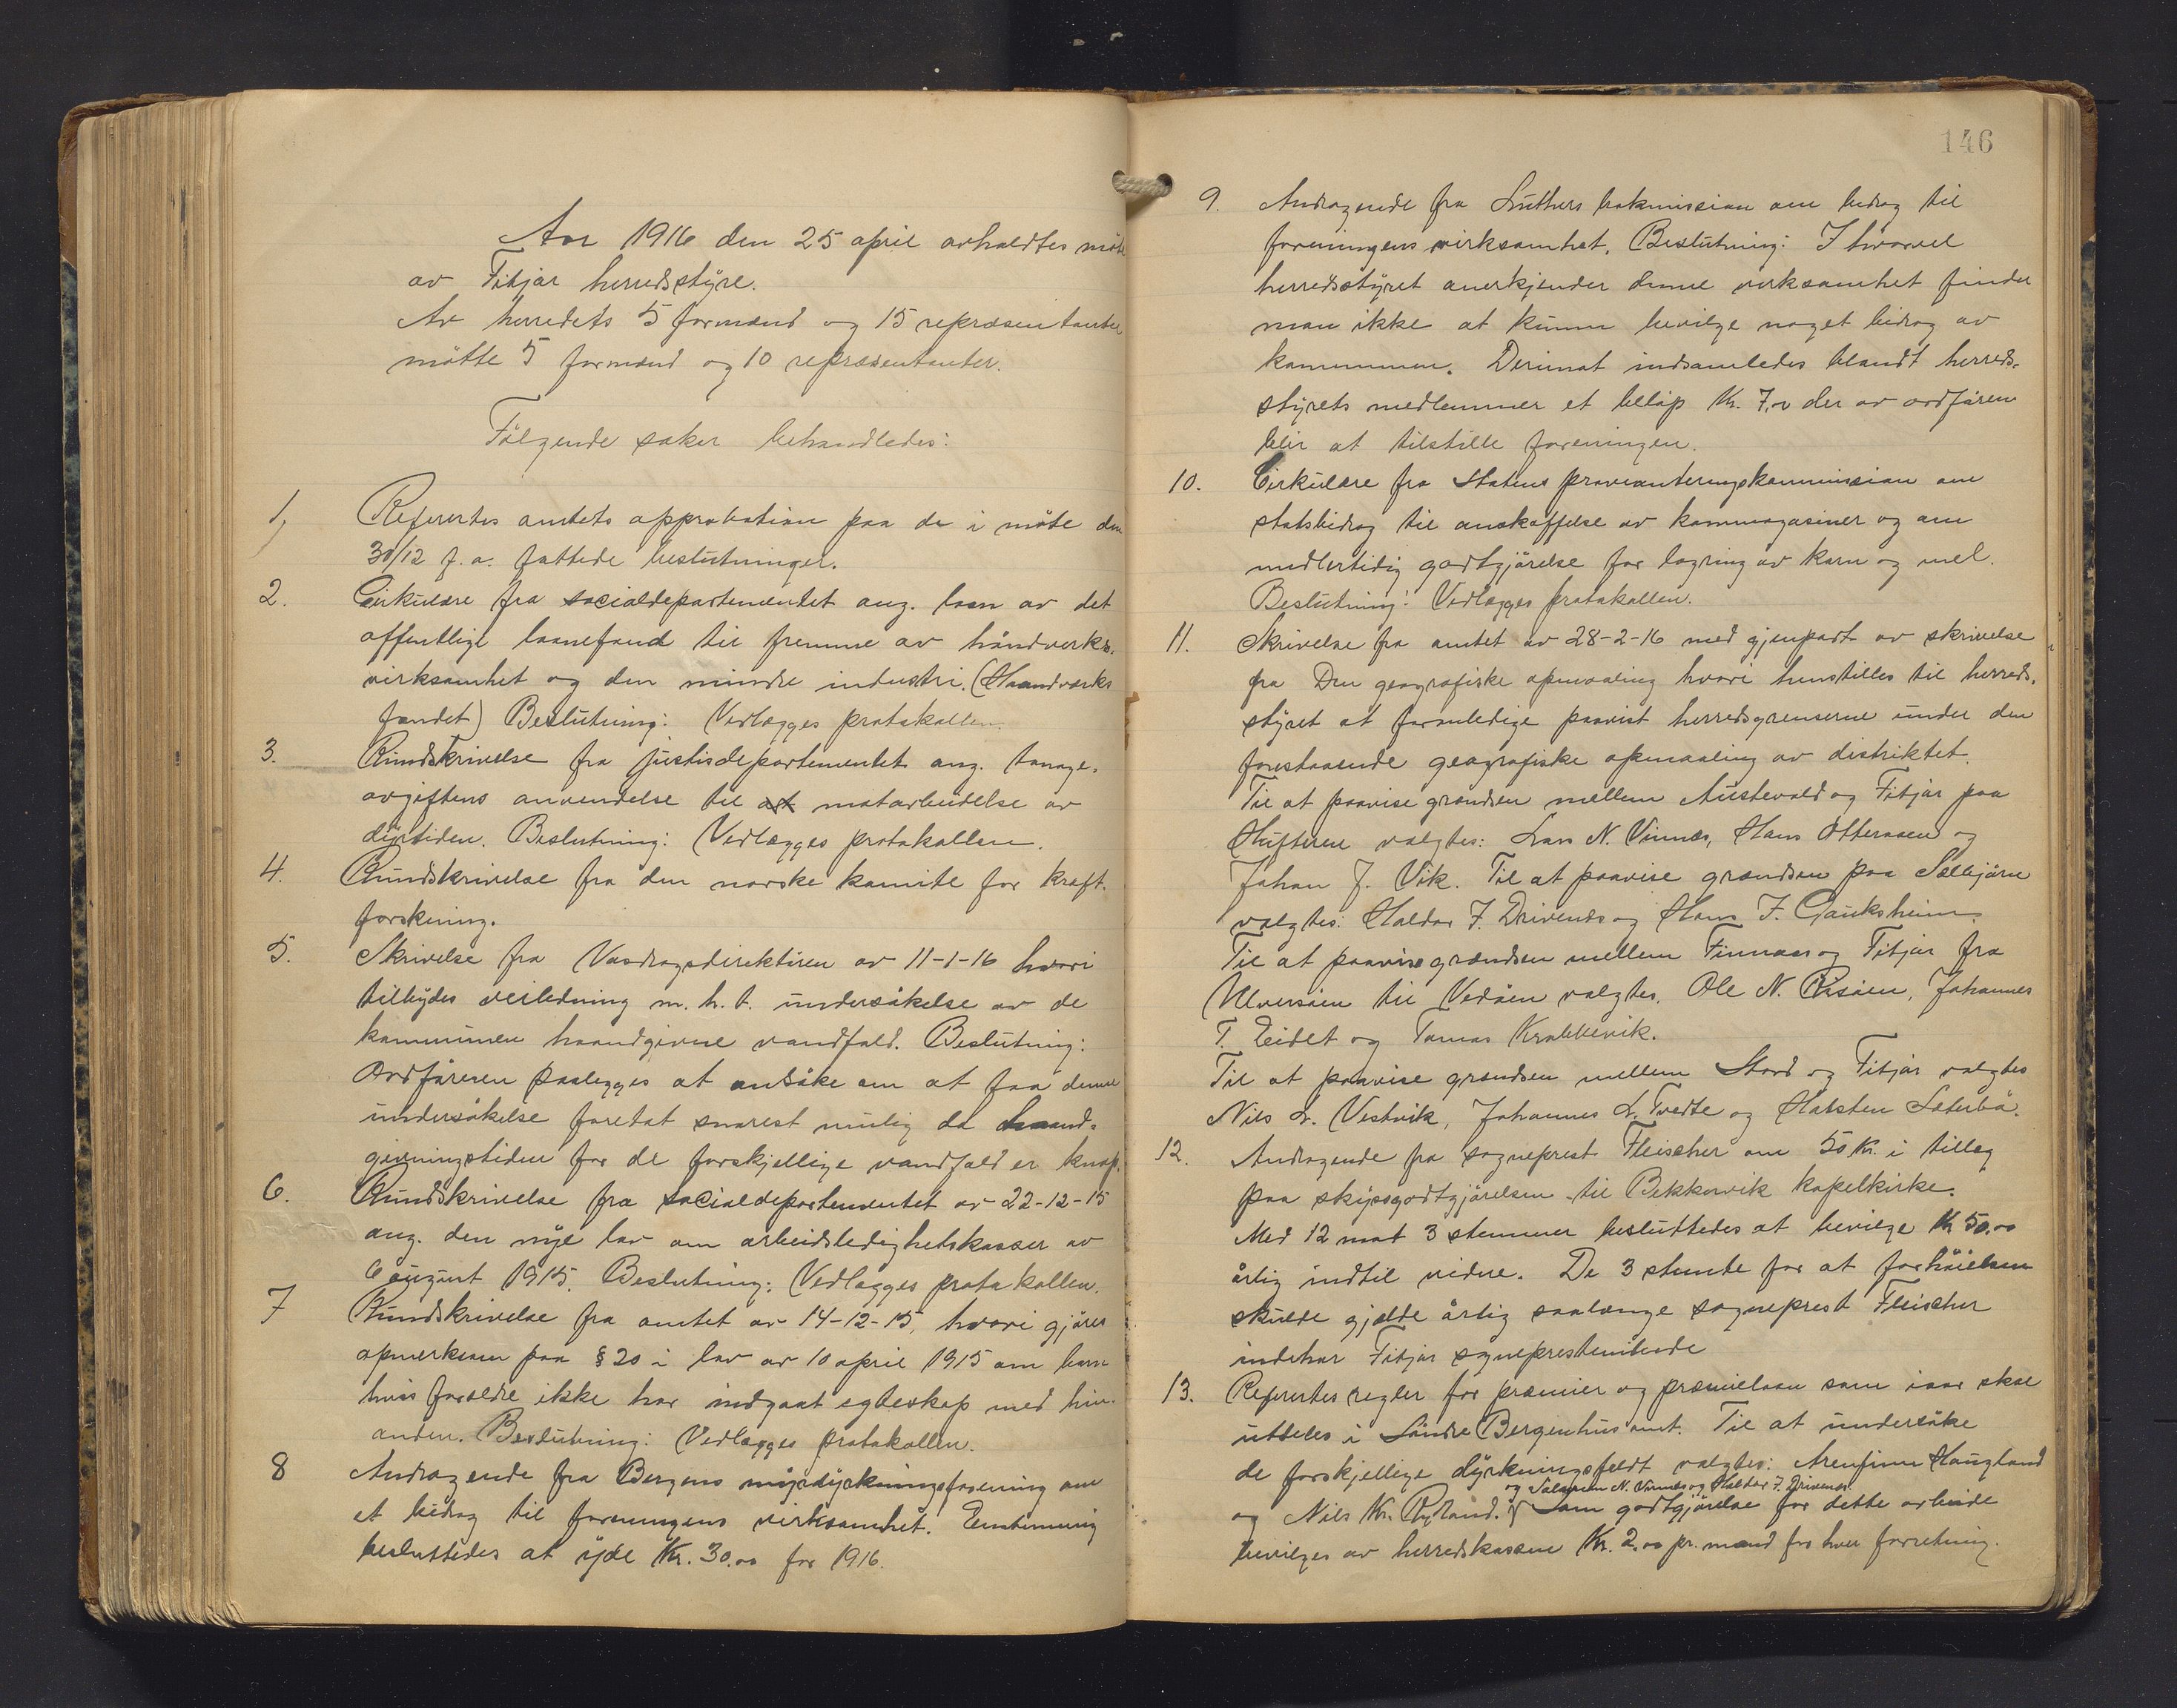 Aar 1916 den 25 april avholdtes møte
av Fitjar herredsstyre.
Av herredets 5 formænd og 15 repræsentanter
møtte 5 formænd og 10 repræsentanter.
Følgende saker behandledes:
1, Refertes amtets approbation paa de i møte den
30/12 f.a. fattede beslutninger.
2. Cirkulære fra socialdepartementet ang. laan av det
offentlige laanefond til fremme av håndverks-
virksomhet og den mindre industri. (Haandværks
fondet) Beslutning: Vedlægges protokollen.
3. Rundskrivelse fra justisdepartementet ang. tonage-
avgiftens anvendelse til motarbeidelse av
dyrtiden. Beslutning: Vedlægges protokollen.
4. Rundskrivelse fra den norske komite for kræft-
forskning.
5. Skrivelse fra Vasdragsdirektøren av 11-1-16 hvori
tilbydes veiledning m.h.t. undersøkelse av de
kommunen haandgivne vandfald. Beslutning:
Ordføreren paalegges at ansøke om at faa denne
undersøkelse foretat snarest mulig da haand-
givningstiden for de forskjellige vandfald er knap.
6. Rundskrivelse fra socialdepartementet av 22-12-15
ang. den nye lov om arbeidsledighetskasser av
6 august 1915. Beslutning: Vedlægges protokollen.
7 Rundskrivelse fra amtet av 14-12-15, hvori gjøres
opmerksom paa § 20 i lov av 10 april 1915 om barn
hvis forældre ikke har indgaat egteskap med hin-
anden. Beslutning: Vedlægges protokollen.
8 Andragende fra Bergens myrdyrkningsforening om
et bidrag til foreningens virksomhet. Enstemmig
besluttedes at yde Kr. 30.00 for 1916.
146
9. Andragende fra Luthers bokmission om bidrag til
foreningens virksomhet. Beslutning: I hvorvel
herredsstyret anerkjender denne virksomhet finder
man ikke at kunne bevilge noget bidrag av
kommunen. Derimot indsamledes blandt herreds-
styrets medlemmer et beløp Kr. 7, der av ordføren
blir at tilstille foreningen.
10. Cirkulære fra Statens provianteringskommission om
statsbidrag til anskaffelse av kornmagasiner og om
midlertidig godtgjørelse for lagring av korn og mel.
Beslutning: Vedlægges protokollen.
11. Skrivelse fra amtet av 28-2-16 med gjenpart av skrivelse
fra Den geografiske opmaaling hvori henstilles til herreds-
styret at foranledige paavist herredsgrenserne under den
forestaaende geografiske opmaaling av distriktet.
Til at paavise grændsen mellem Austevold og Fitjar paa
Huftern valgtes: Lars N. Vinnes, Hans Ottersen og
Johan J. Vik. Til at paavise grændsen paa Selbjørn
valgtes: Haldor J. Drivenes og Hans J. Gauksheim.
Til at paavise grændsen mellem Finnaas og Fitjar fra
Ulversøen til Vedøen valgtes. Ole N. Risøen, Johannes
T. Eidet og Tomas Krabbevik.
Til at paavise grændsen mellem Stord og Fitjar valgtes
Nils L. Vestvik, Johannes L. Tvedte og Halsten Saterbø.
12. Andragende fra sogneprest Fleischer om 50 Kr. i tillæg
paa skydsgodtgjørelsen til Bekkervik kapelkirke.
Med 12 mot 3 stemmer besluttedes at bevilge Kr 50.00
årlig indtil videre. De 3 stemte for at forhøielsen
skulde gjælde årlig saalænge sogneprest Fleischer
indehar Fitjar sogneprestembede
13. Refertes regler for præmier og præmielaan som iaar skal
utdeles i Søndre Bergenhus amt. Til at undersøke
de forskjellige dyrkningsfeldt valgtes: Arenfinn Haugland
og Salamon N. Vinnes og Haldor J. Drivenes.
og Nils Kr. Rydland. Som godtgjørelse for dette arbeide
bevilges av herredskassen Kr. 2.00 pr. mand for hver forretning.